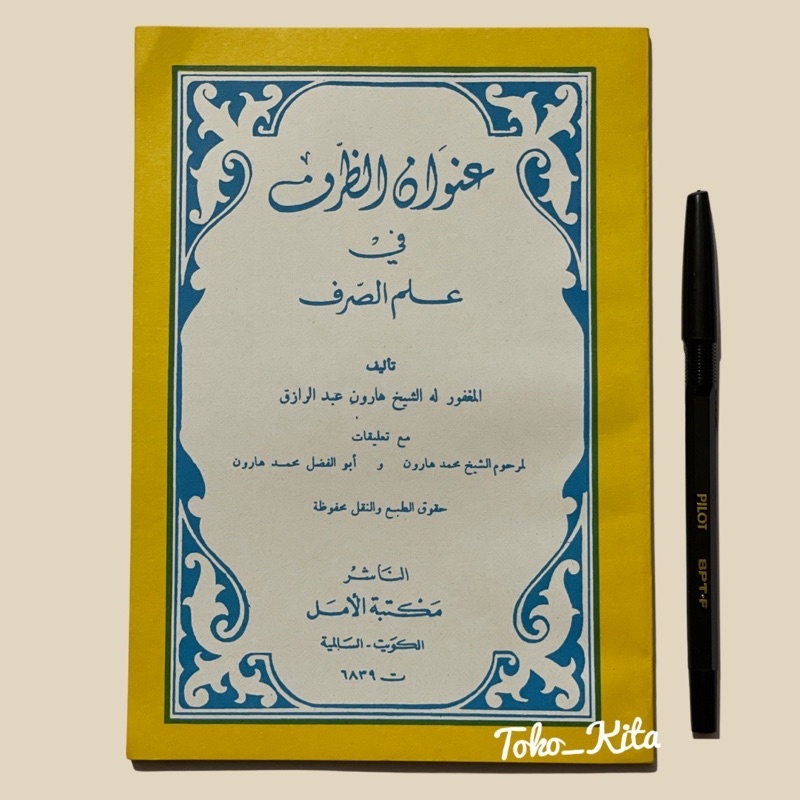 عنوَان الظّرف
في
علم الصّرف
تأليف
المغفور له الشيخ هارون عبد الرازق
مع تعليقات
لمرحوم الشيخ محمد هارون و أبو الفضل محمد هارون
حقوق الطبع والنقل محفوظة
النَاشرُ
مَكتبة الأمَل
الكويَت - السَالمية
ت ٦٨٣٩
PILOT BPT-F
Toko_Kita